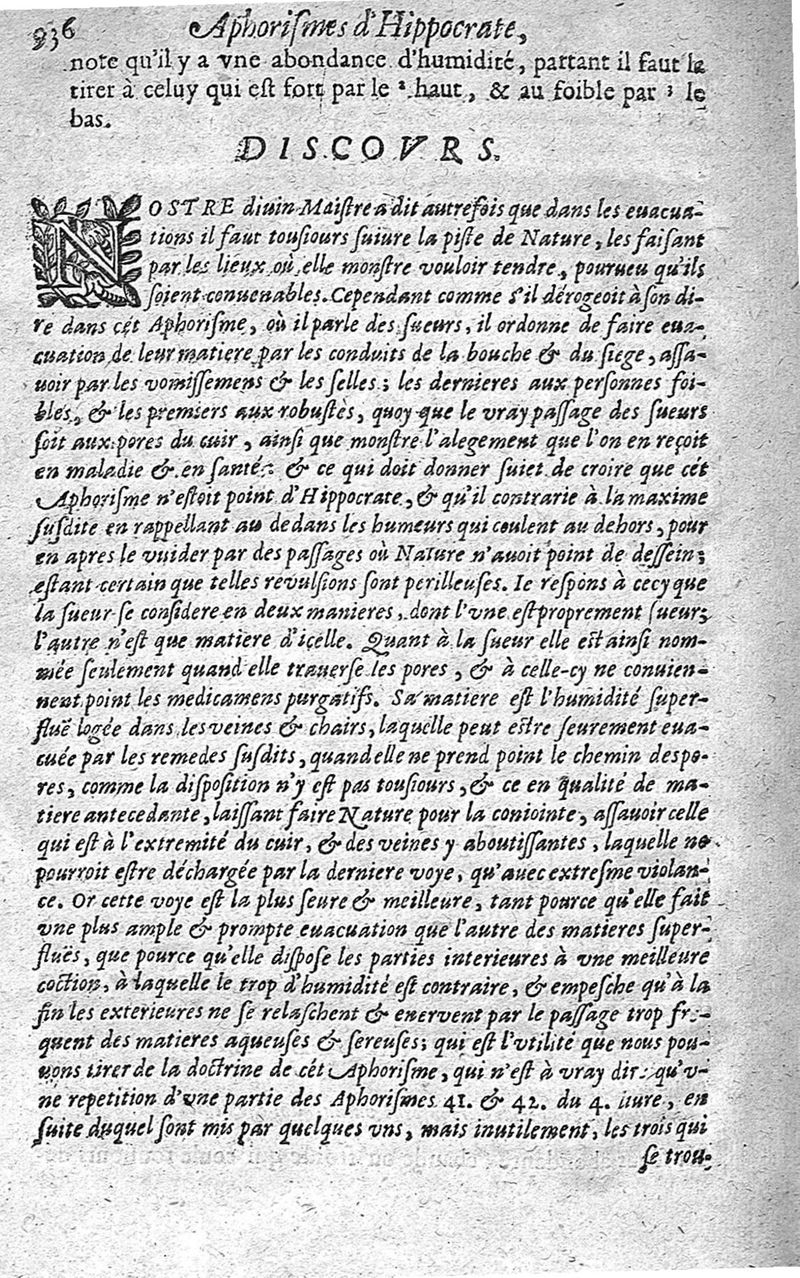 936 Aphoriſmes d'Hippocrate,
note qu'il y a vne abondance d'humidité, partant il faut la
tirer à celuy qui est fort par le ² haut, & au foible par ³ le
bas.
DISCOVRS.
NOSTRE diuin Maiſtre a dit autrefois que dans les euacua-
tions il faut touſiours ſuiure la piſte de Nature, les faiſant
par les lieux où elle monſtre vouloir tendre, pourueu qu'ils
ſoient conuenables. Cependant comme s'il dérogeoit à ſon di-
re dans cét Aphoriſme, où il parle des ſueurs, il ordonne de faire eua-
cuation de leur matiere par les conduits de la bouche & du ſiege, aſſa-
uoir par les vomiſſemens & les ſelles; les dernieres aux perſonnes foi-
bles, & les premiers aux robuſtes, quoy que le vray paſſage des ſueurs
ſoit aux pores du cuir, ainſi que monſtre l'alegement que l'on en reçoit
en maladie & en ſanté: & ce qui doit donner ſuiet de croire que cét
Aphoriſme n'eſtoit point d'Hippocrate, & qu'il contrarie à la maxime
ſuſdite en rappellant au dedans les humeurs qui coulent au dehors, pour
en apres le vuider par des paſſages où Nature n'auoit point de deſſein;
eſtant certain que telles reuulſions ſont perilleuſes. Ie reſpons à cecy que
la ſueur ſe conſidere en deux manieres, dont l'vne eſt proprement ſueur;
l'autre n'eſt que matiere d'icelle. Quant à la ſueur elle eſt ainſi nom-
mée ſeulement quand elle trauerſe les pores, & à celle-cy ne conuien-
nent point les medicamens purgatifs. Sa matiere eſt l'humidité ſuper-
fluë logée dans les veines & chairs, laquelle peut eſtre ſeurement eua-
cuée par les remedes ſuſdits, quand elle ne prend point le chemin des po-
res, comme la diſpoſition n'y eſt pas touſiours, & ce en qualité de ma-
tiere antecedante, laiſſant faire Nature pour la coniointe, aſſauoir celle
qui eſt à l'extremité du cuir, & des veines y aboutiſſantes, laquelle ne
pourroit eſtre déchargée par la derniere voye, qu'auec extreſme violan-
ce. Or cette voye eſt la plus ſeure & meilleure, tant pource qu'elle fait
vne plus ample & prompte euacuation que l'autre des matieres ſuper-
fluës, que pource qu'elle diſpoſe les parties interieures à vne meilleure
coction, à laquelle le trop d'humidité eſt contraire, & empeſche qu'à la
fin les exterieures ne ſe relaſchent & eneruent par le paſſage trop fre-
quent des matieres aqueuſes & ſereuſes; qui eſt l'vtilité que nous pou-
uons tirer de la doctrine de cét Aphoriſme, qui n'eſt à vray dire qu'v-
ne repetition d'vne partie des Aphoriſmes 41. & 42. du 4. liure, en
ſuite duquel ſont mis par quelques vns, mais inutilement, les trois qui
ſe trou-